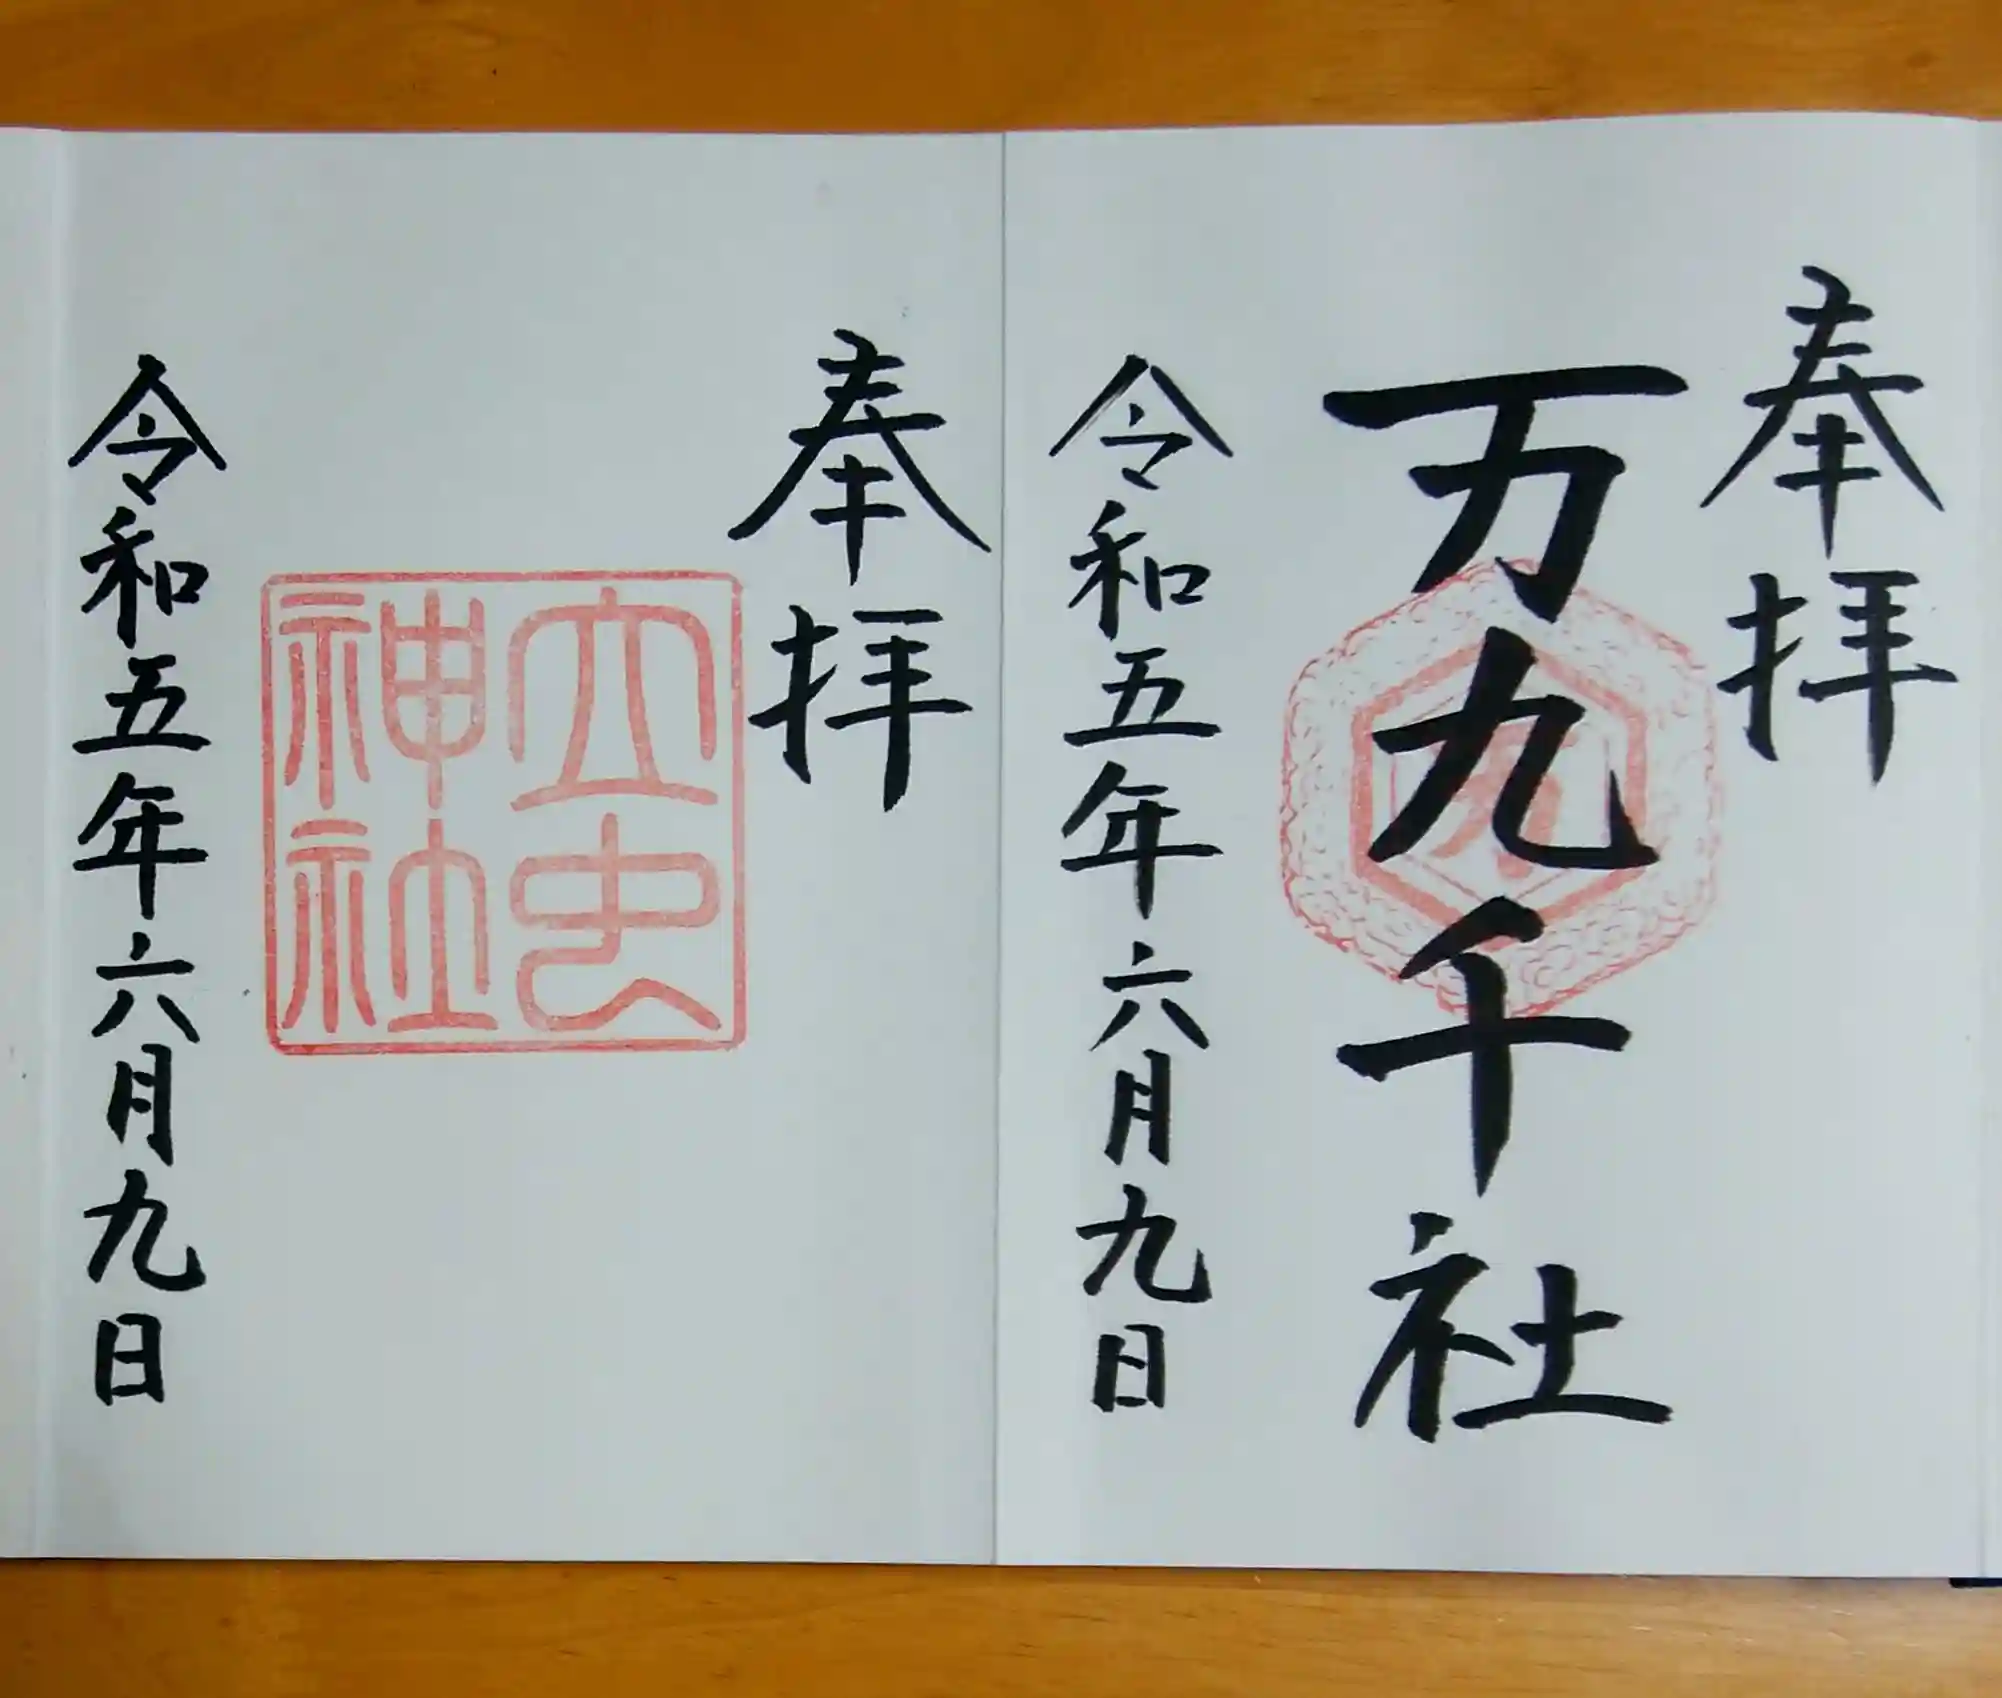 奉拝
万九千社
令和五年六月九日
奉拝
立虫
神社
令和五年六月九日